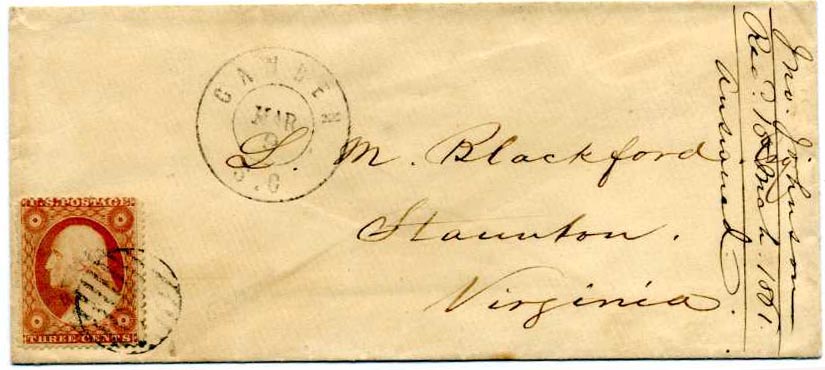 CAMDEN
MAR
9
S.C
L. M. Blackford.
Staunton.
Virginia.
U.S. POSTAGE
THREE CENTS
Jno. Johnson
Rec'd. Mch. 1861.
Answered.